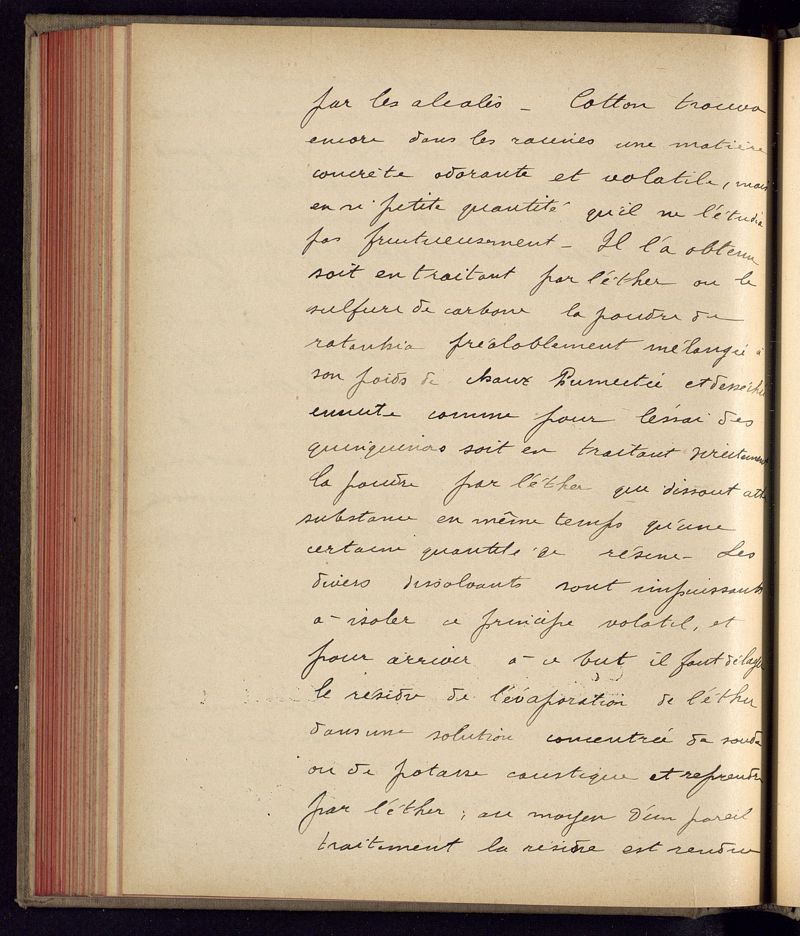 par les alcalis - Cotton trouva
encore dans les racines une matière
concrète odorante et volatile, mais
en si petite quantité qu'il ne l'étudia
pas fructueusement - Il l'a obtenu
soit en traitant par l'éther ou le
sulfure de carbone la poudre de
ratanhia préalablement mélangée à
son poids de chaux humectée et desséchée
ensuite comme pour l'éssai des
quinquinas soit en traitant directement
la poudre par l'éther qui dissout cette
substance en même temps qu'une
certaine quantité de résine - Les
divers dissolvants sont impuissants
a isoler ce principe volatil, et
pour arriver à ce but il faut délayer
le résidu de l'évaporation de l'éther
dans une solution concentrée de soude
ou de potasse caustique et reprendre
par l'éther ; au moyen d'un pareil
traitement la résine est rendue